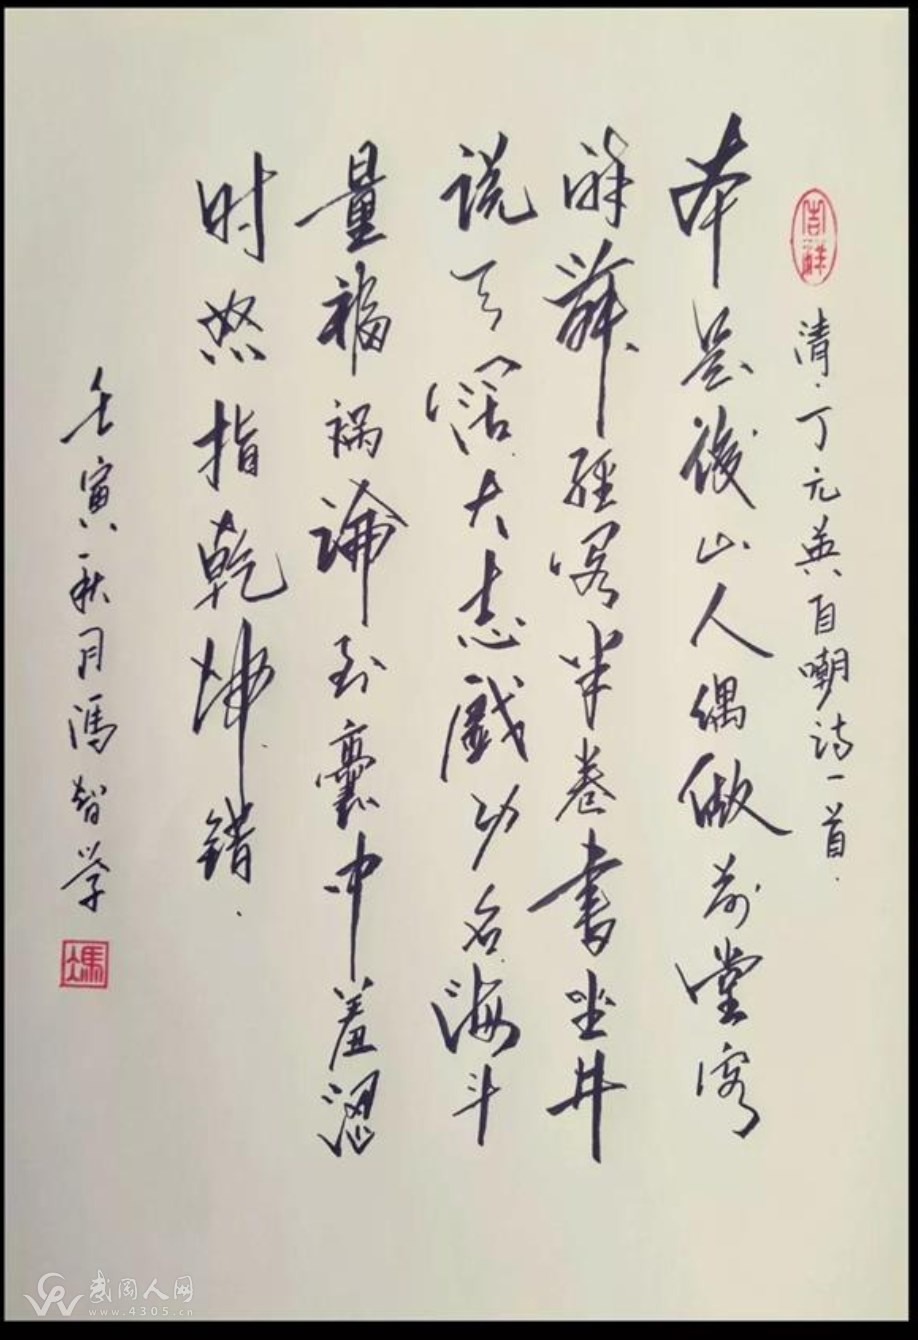 吉祥
清·丁元英自嘲诗一首.
本是後山人偶做前堂客
醉舞經阁半卷書坐井
说天阔大志戲功名海斗
量福祸論到囊中羞涩
时怒指乾坤错.
壬寅秋月馮智学
馮
武冈人网
www.4305.cn